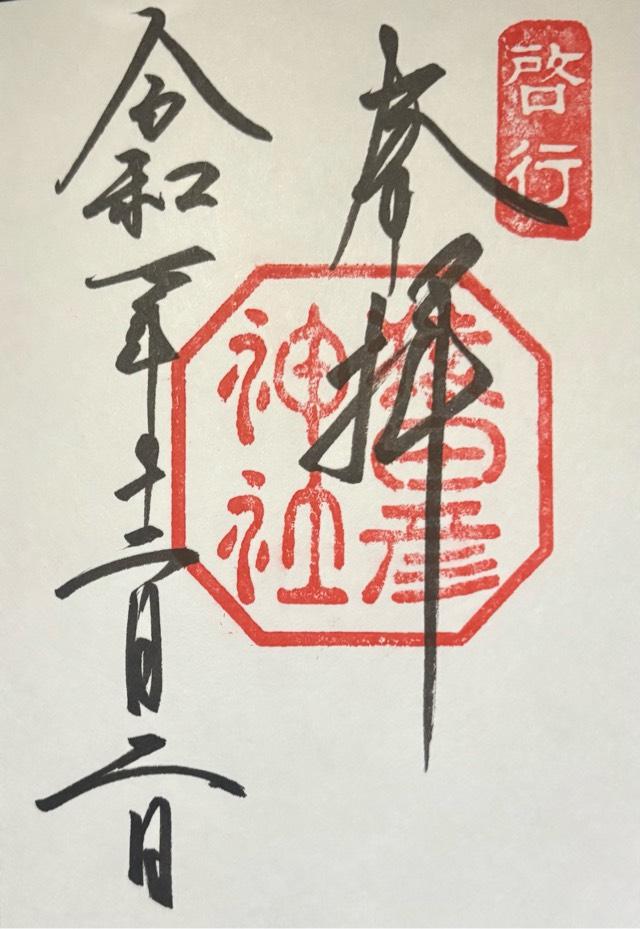 啓行
奉拝
猿田彦
神社
令和年十二月二日